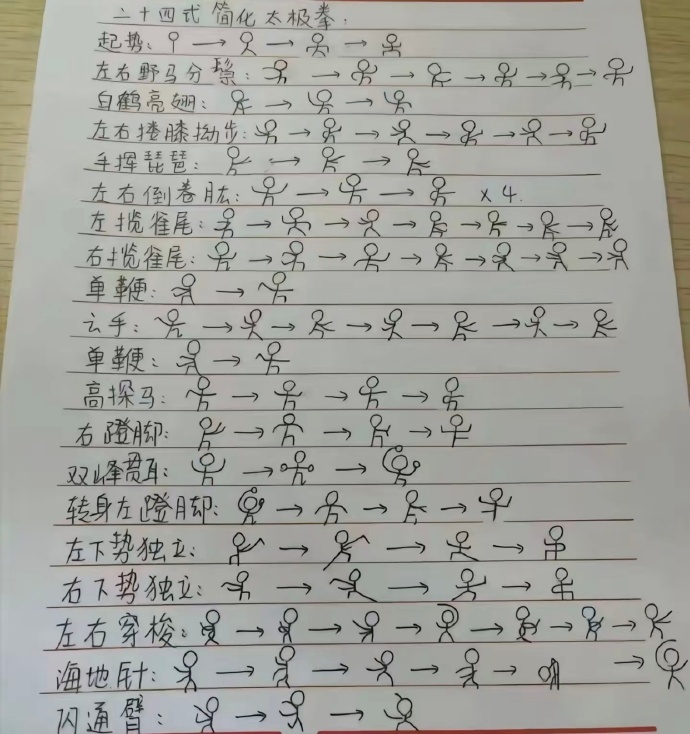 二十四式 简化 太极拳.
起势:
左右野马分鬃:
白鹤亮翅:
左右搂膝拗步:
手挥琵琶:
左右倒卷肱: ×4.
左揽雀尾:
右揽雀尾:
单鞭:
云手:
单鞭:
高探马:
右蹬脚:
双峰贯耳:
转身左蹬脚:
左下势独立:
右下势独立:
左右穿梭:
海地针:
闪通臂: